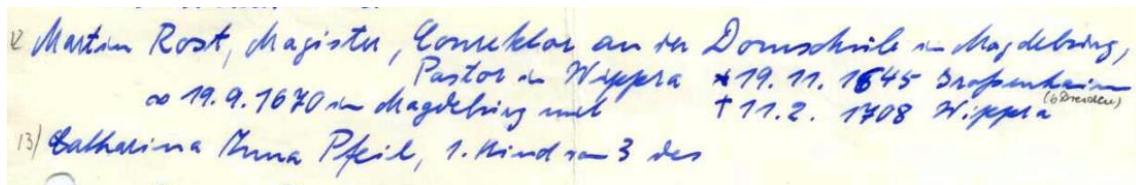 12 Martin Rost, Magister, Conrektor an der Domschule in Magdeburg,
Pastor in Wippra * 19. 11. 1645 Großenhain
(b Dresden)
∞ 19. 9. 1670 in Magdeburg mit † 11. 2. 1708 Wippra
13/ Catharina Anna Pfeil, 1. Kind von 3 des